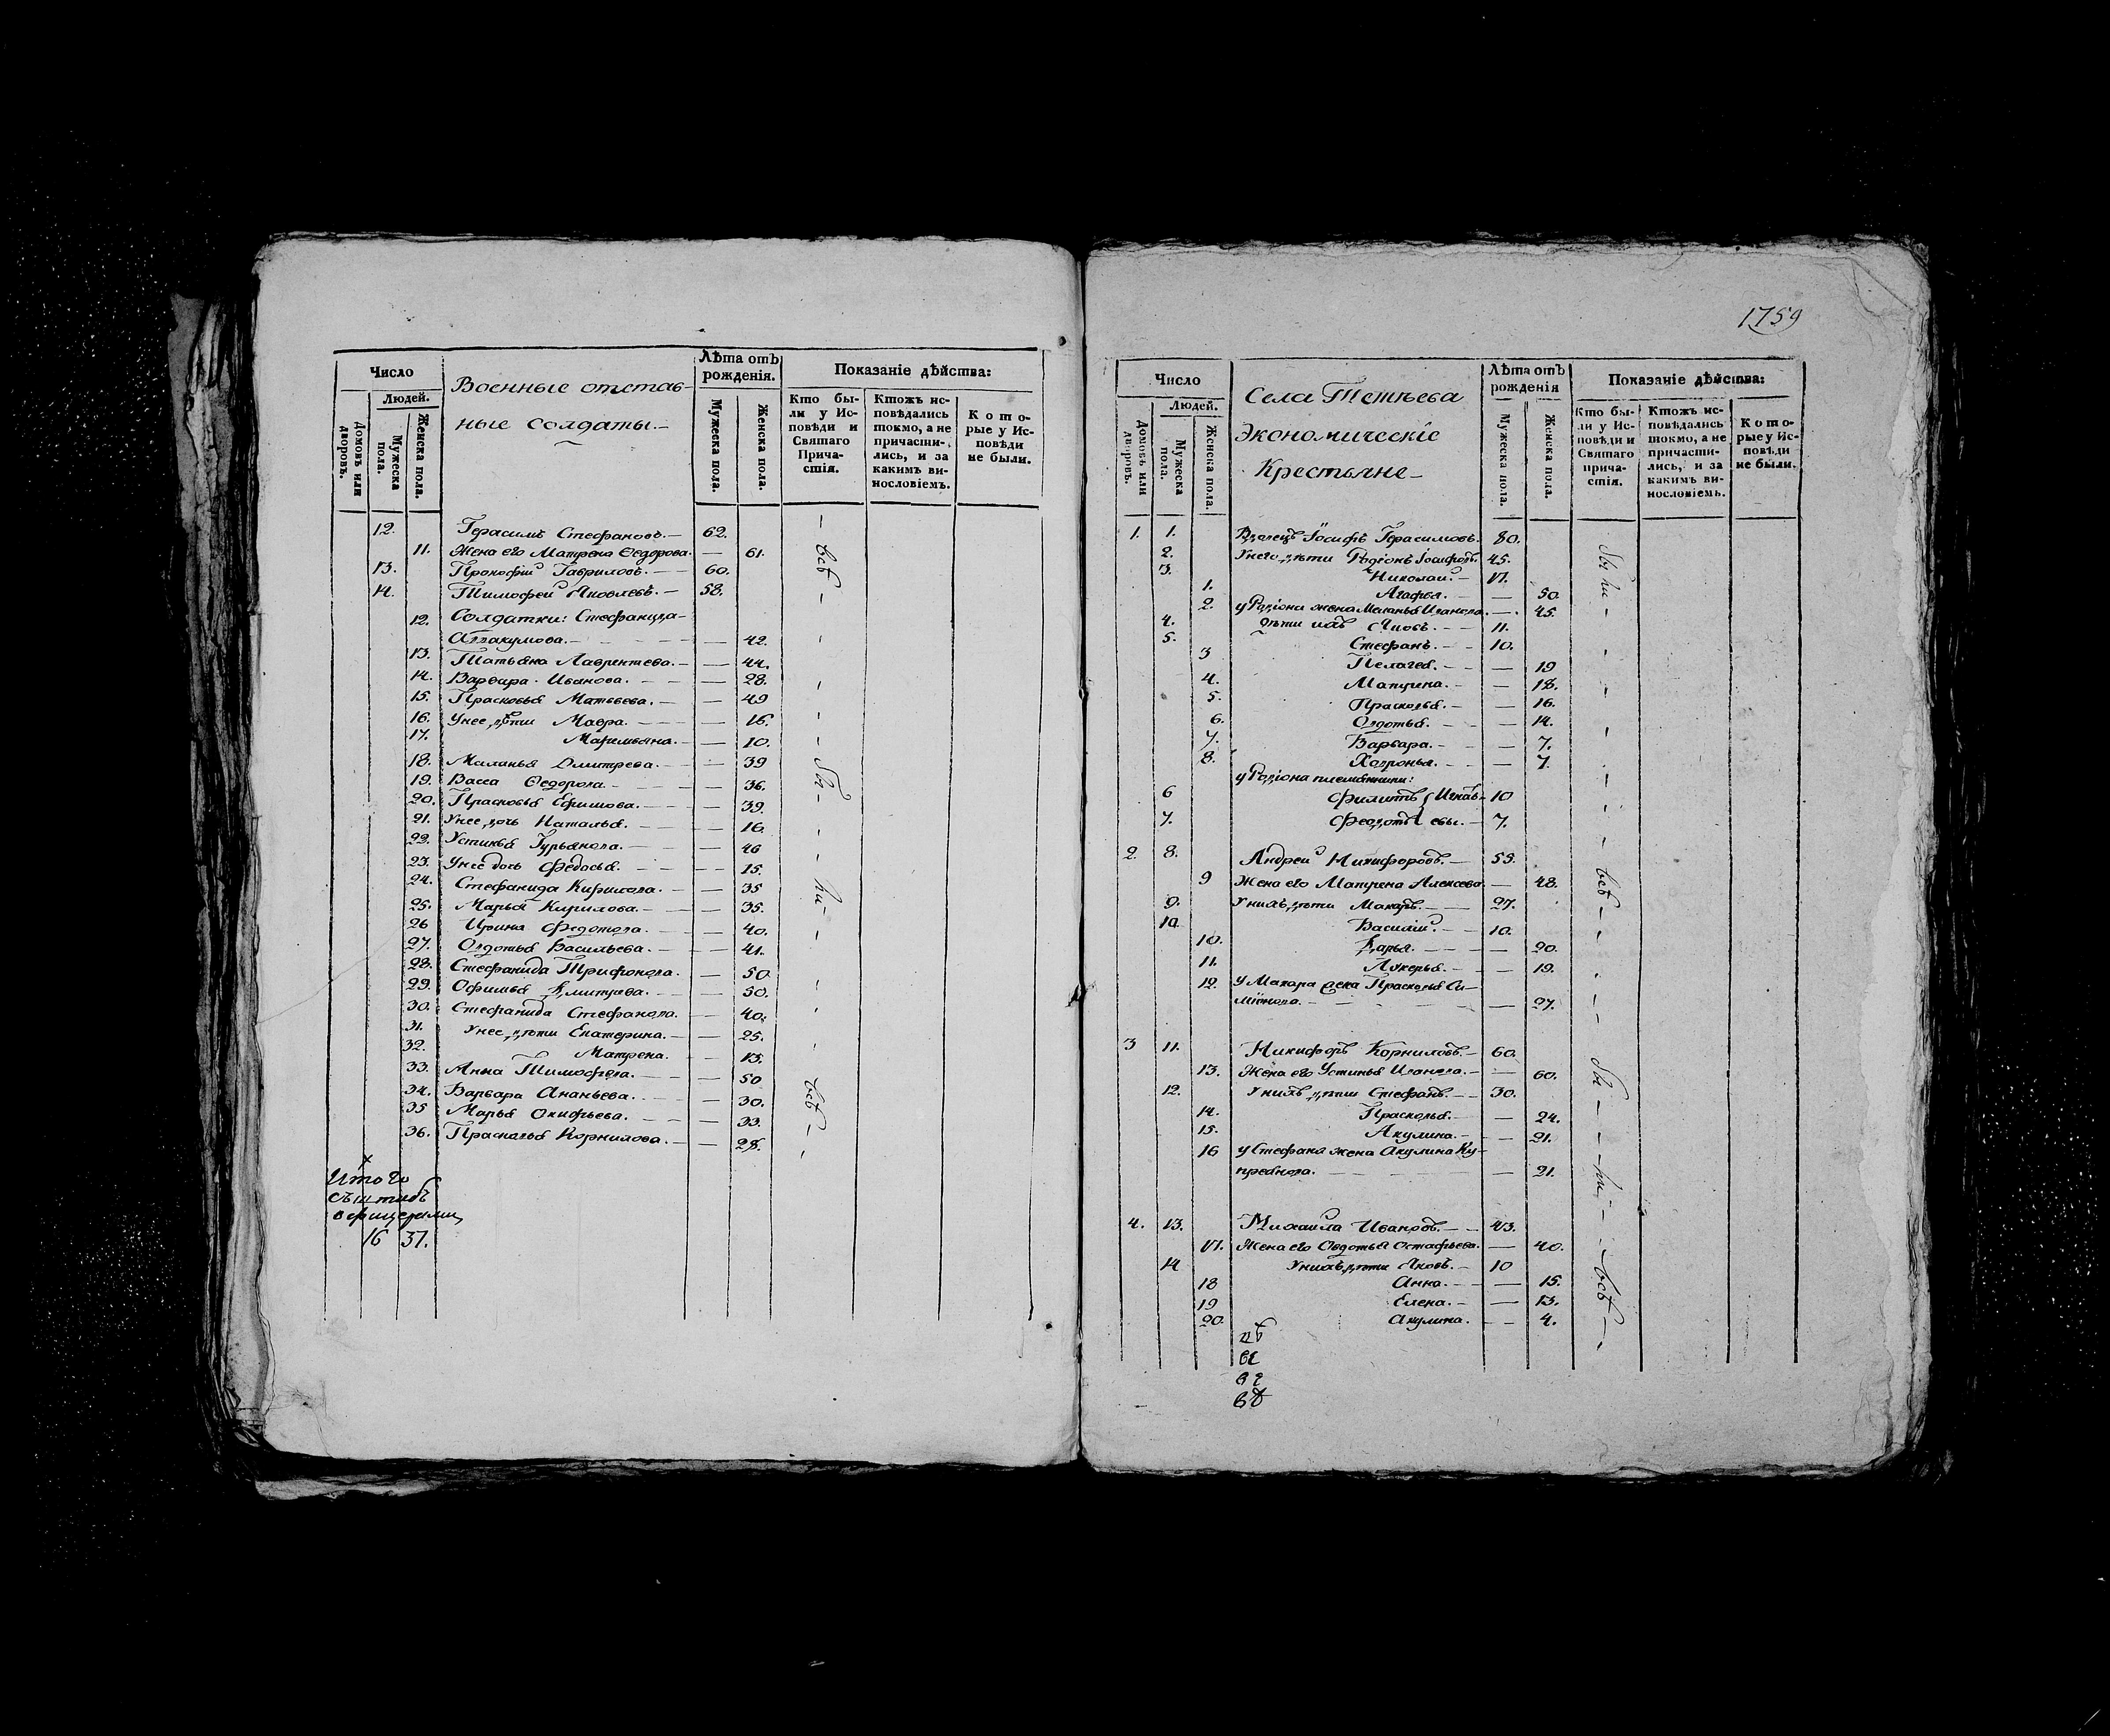 Число
Людей.
Домовъ или дворовъ.
Мужеска пола.
Женска пола.
Военные отстав-
ные солдаты.-
Лѣта отъ
рожденія.
Мужеска пола.
Женска пола.
Показаніе дѣйства:
Кто бы-
ли у Ис-
повѣди и
Святаго
Прича-
стія.
Ктожъ ис-
повѣдались
токмо, а не
причасти-
лись, и за
какимъ ви-
нословіемъ.
К о т о-
рые у Ис-
повѣди
не были.
12. Герасимъ Стефановъ.- 62.
11. Жена его Матрена Ѳедорова. — 61.
13. Прокофій Гавриловъ. — 60.
14. Тимофей Яковлевъ. — 58.
12. Солдатки: Стефанида
Аввакумова. — 42.
13. Татьяна Лаврентева. — 44.
14. Варвара Иванова. — 28.
15. Прасковья Матвѣева. — 49
16. Унее дѣти Мавра. — 16.
17. Маремьяна. — 10.
18. Маланья Дмитрева. — 39
19. Васса Ѳедорова. — 36.
20. Прасковья Ефимова. — 39.
21. Унее дочь Наталья. — 16.
22. Устинья Гурьянова. — 46
23. Унее дочь Федосья. — 15.
24. Стефанида Кирилова. — 35
25. Марья Кирилова. — 35.
26 Ирина Федотова. — 40.
27. Овдотья Васильева. — 41.
28. Стефанида Трифонова. — 50.
29. Офимья Дмитрева. — 50.
30. Стефанида Стефанова. — 40.
31. Унее дѣти Екатерина. — 25.
32. Матрена. — 13.
33. Анна Тимофева. — 50
34. Варвара Ананьева. — 30.
35 Марья Окифьева. — 33.
36. Прасковья Корнилова. — 28.
всѣ
бы
ли
всѣ
Итого
съ штабъ
офицерами
16 37.
1759
Число
Людей.
Домовъ или дворовъ.
Мужеска пола.
Женска пола.
Села Тетѣева
Экономическіе
Крестьяне-
Лѣта отъ
рожденія
Мужеска пола.
Женска пола.
Показаніе дѣйства:
Кто бы-
ли у Ис-
повѣди и
Святаго
прича-
стія.
Ктожъ ис-
повѣдались
токмо, а не
причасти-
лись, и за
какимъ ви-
нословіемъ.
К о т о-
рые у Ис-
повѣди
не были.
1. 1. Вдовецъ Іосифъ Герасимовъ. 80.
2. Унего дѣти Родіонъ Іосифовъ. 45.
3. Николай. — 17.
1. Агафья. — 50.
2. у Родіона жена Меланья Иванова. — 45.
4. дѣти ихъ Яковъ. — 11.
5. Стефанъ. — 10.
3 Пелагея. — 19
4. Матрена. — 18.
5. Прасковья. — 16.
6. Овдотья. — 14.
7. Варвара. — 7.
8. Хавронья. — 7.
у Родіона племянники:
6 Филипъ Игнать- 10
7. Федотъ евы. — 7.
2. 8. Андрей Никифоровъ. — 53.
9 Жена его Матрена Алексева — 48.
9. Унихъ дѣти Макаръ. — 27.
10. Василій. — 10.
10. Дарья. — 20.
11. Лукерья. — 19.
12. У Макара жена Прасковья Си-
міонова. — 27.
3 11. Никифоръ Корниловъ. — 60.
13. Жена его Устинья Иванова. — 60.
12. Унихъ дѣти Стефанъ. — 30.
14. Прасковья. — 24.
15. Акулина. — 21.
16 у Стефана жена Акулина Ку-
преянова. — 21.
4. 13. Михайла Ивановъ. — 43.
17. Жена его Овдотья Остафьева. — 40.
14 Унихъ дѣти Яковъ. — 10
18 Анна. — 15.
19 Елена. — 13.
20 Акулина. — 4.
бы ли
всѣ
бы
ли
всѣ